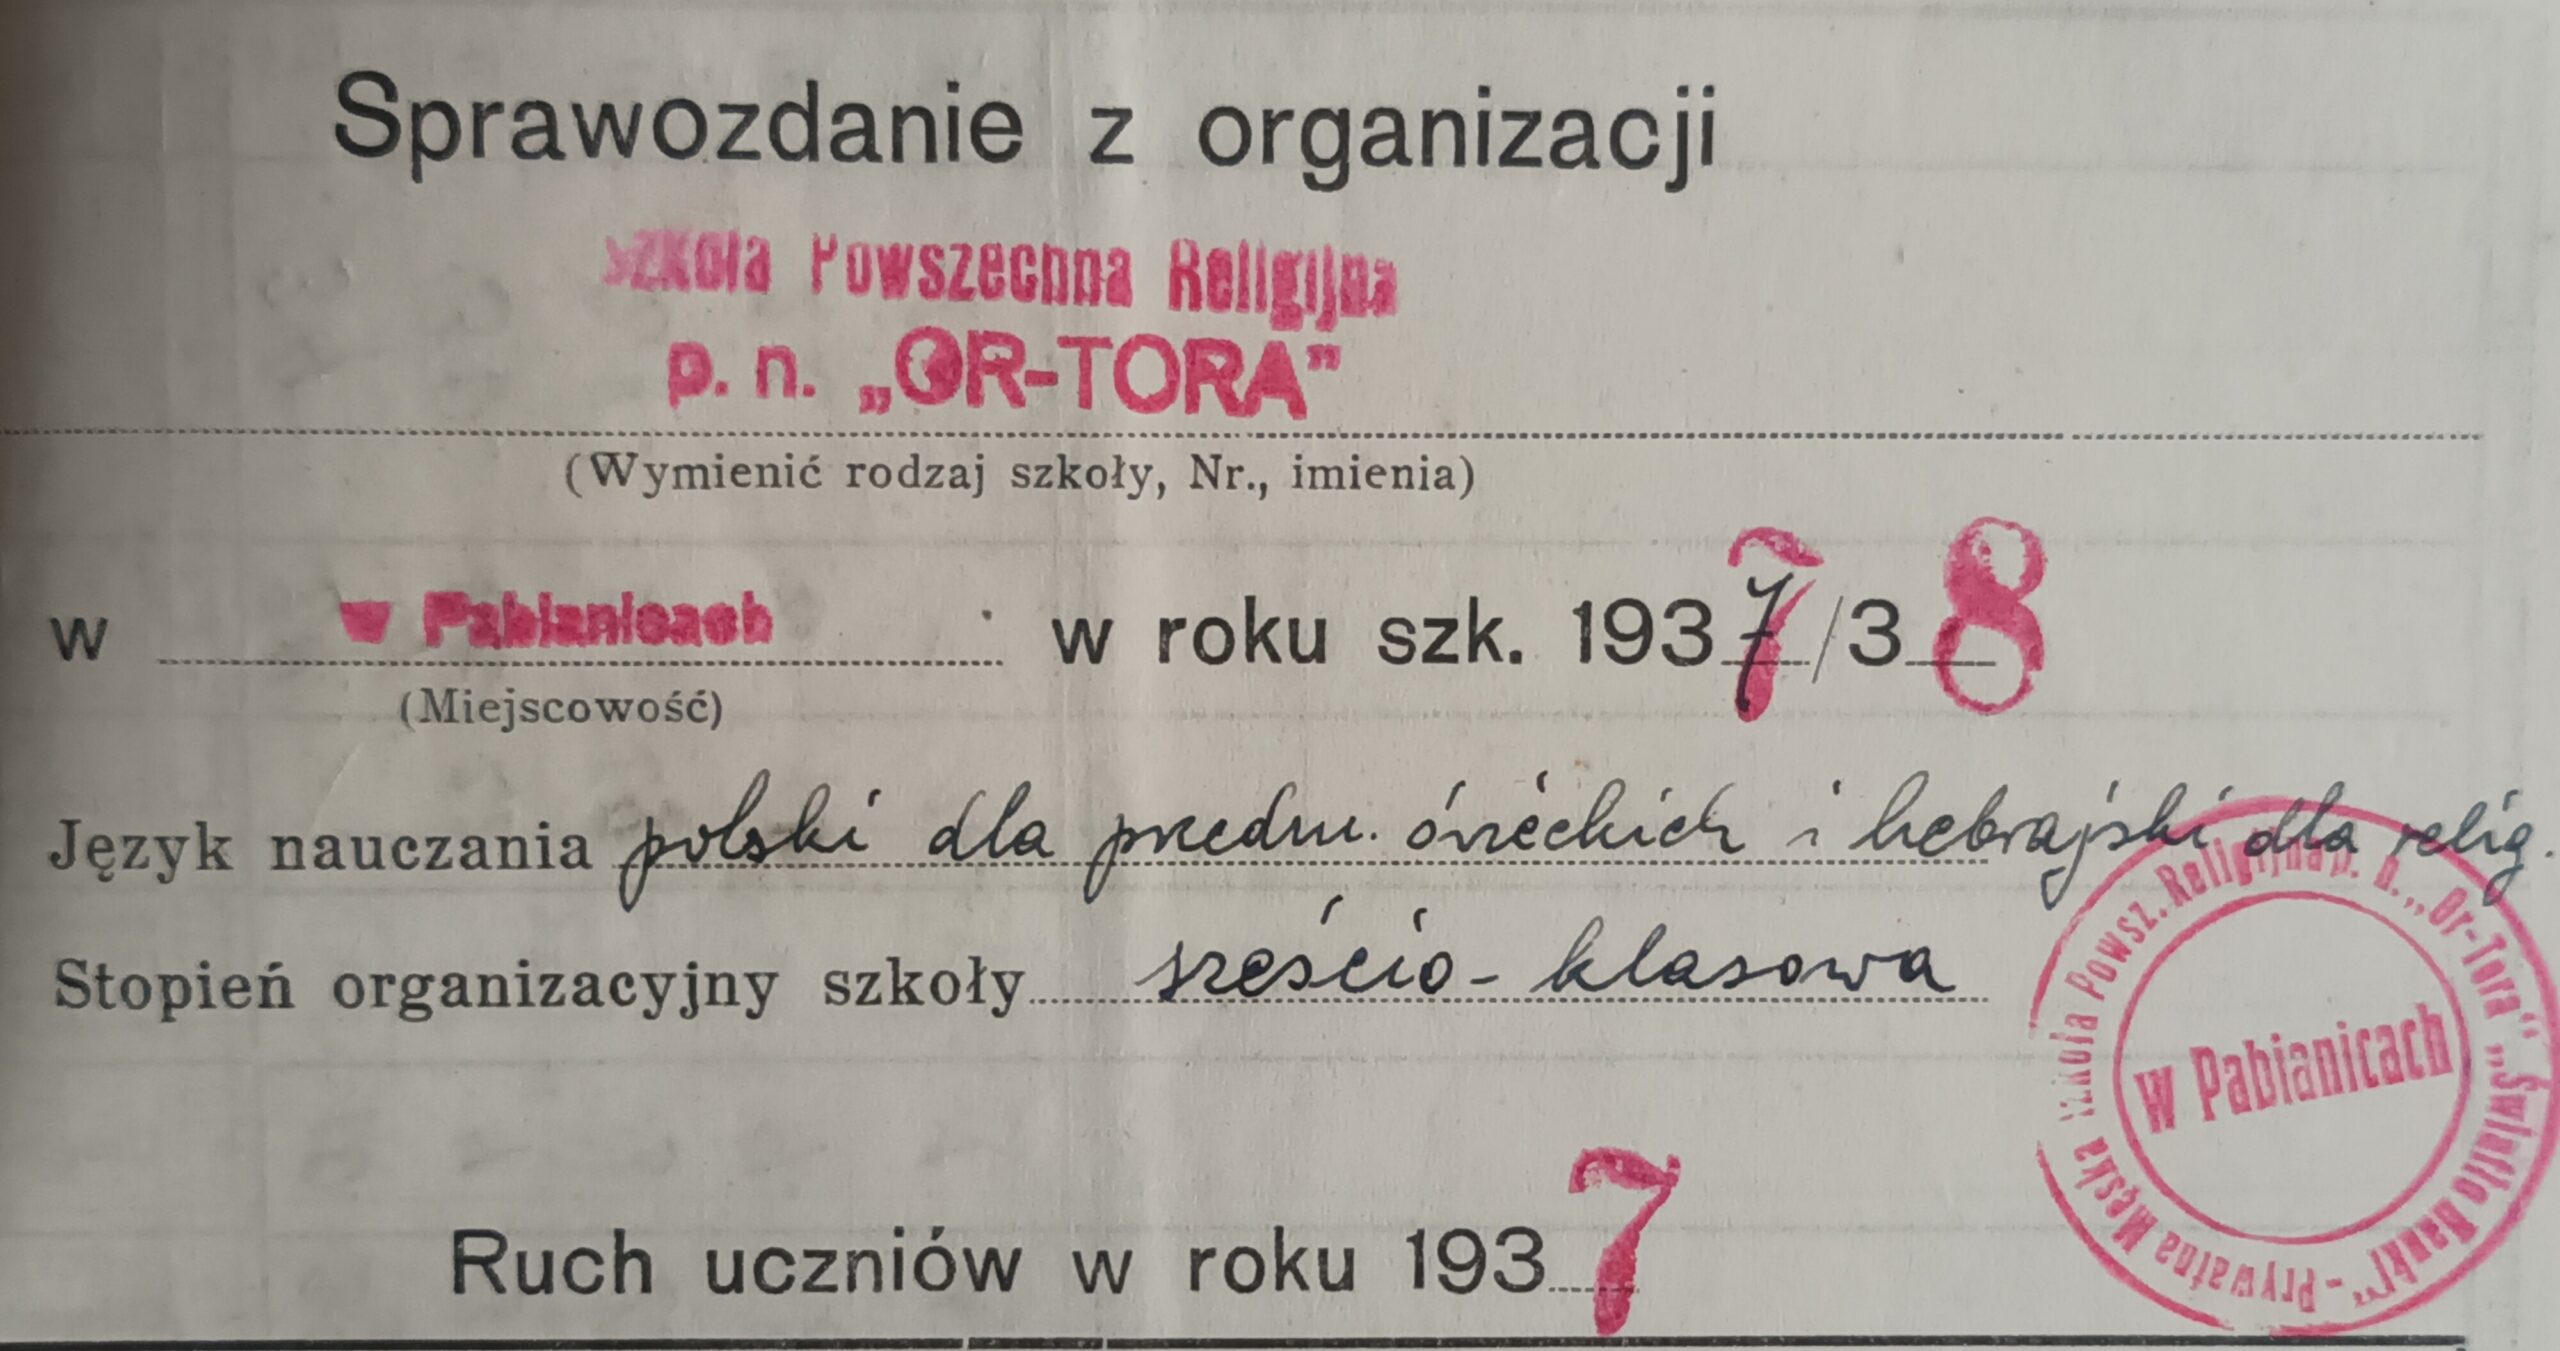 Sprawozdanie z organizacji
Szkoła Powszechna Religijna
p. n. „OR-TORA”
(Wymienić rodzaj szkoły, Nr., imienia)
w w Pabianicach w roku szk. 1937/38
(Miejscowość)
Język nauczania polski dla przedm. świeckich i hebrajski dla relig.
Stopień organizacyjny szkoły sześcio-klasowa
Prywatna Męska Szkoła Powsz. Religijna p. n. „Or-Tora” „Światło Nauki” -
w Pabianicach
Ruch uczniów w roku 1937